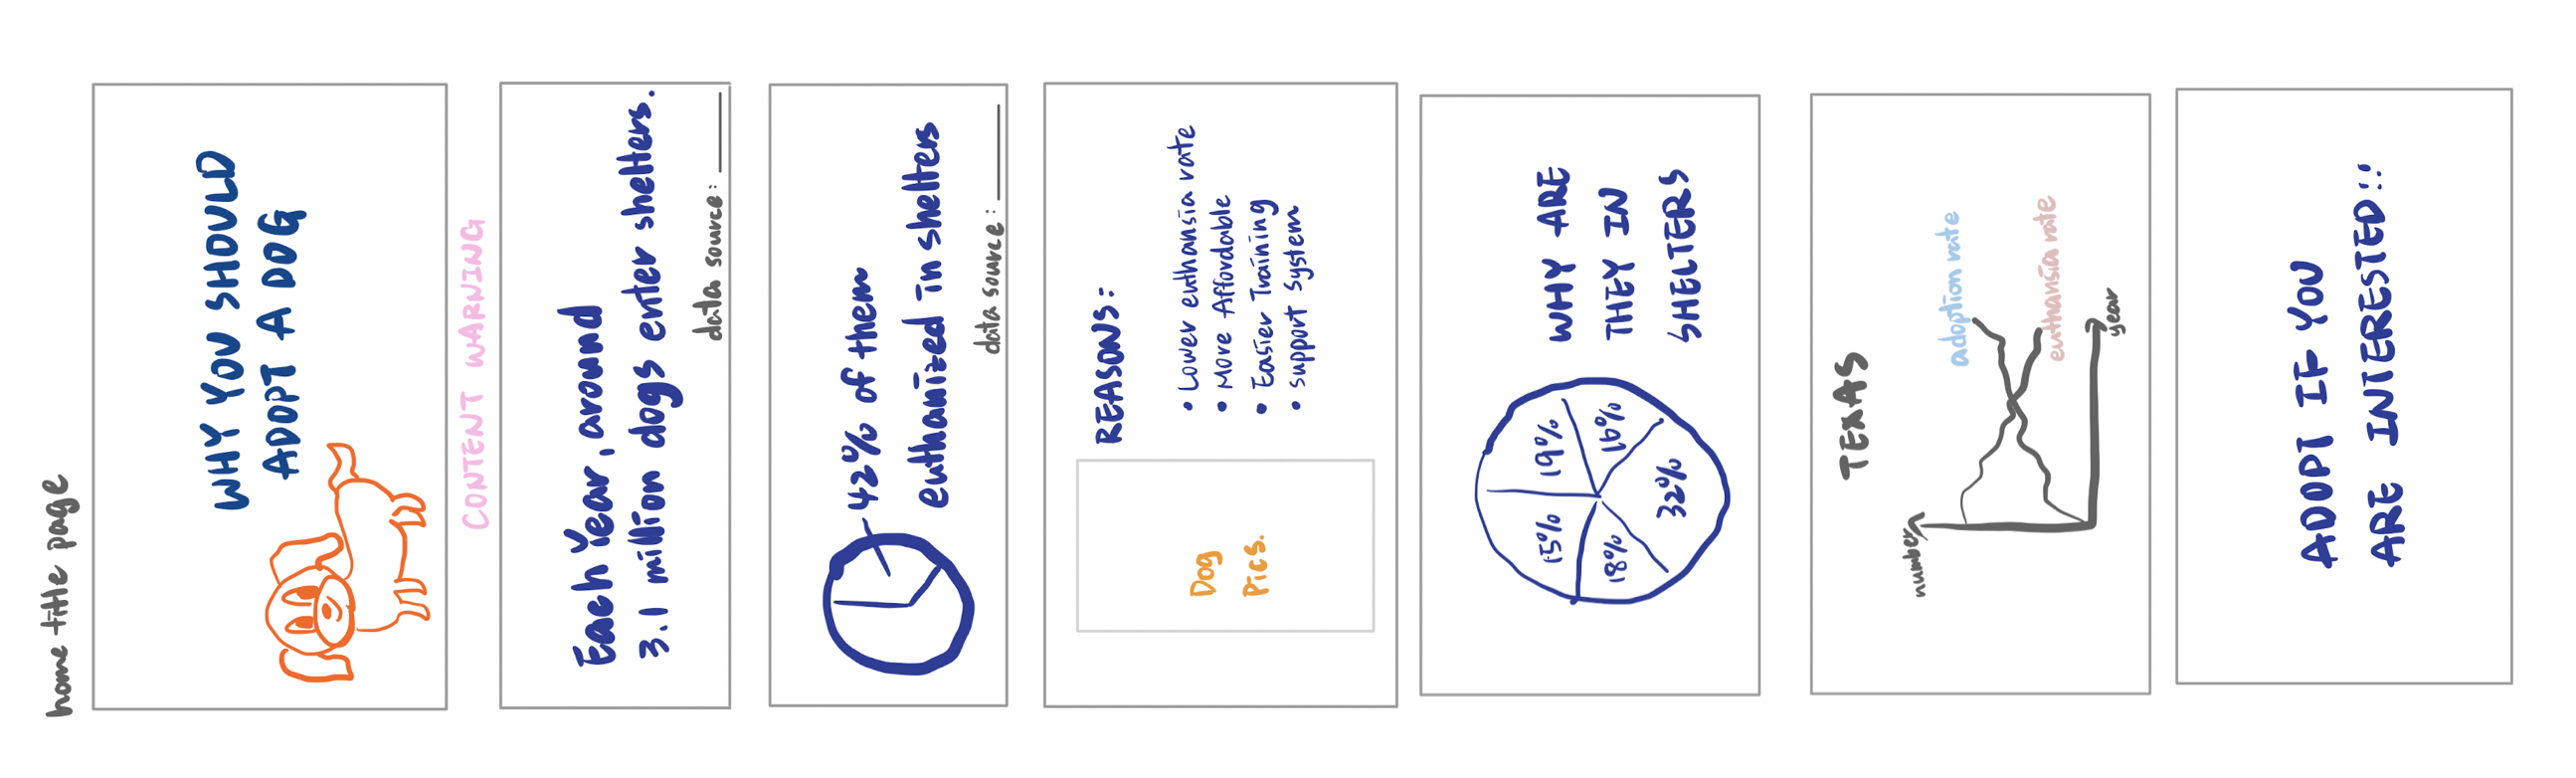 home title page
WHY YOU SHOULD
ADOPT A DOG
CONTENT WARNING
Each Year, around
3.1 million dogs enter shelters.
data source:
42% of them
euthanized in shelters
data source:
REASONS:
• Lower euthansia rate
• More Affordable
• Easier Training
• support system
Dog
Pics.
WHY ARE
THEY IN
SHELTERS
19%
16%
15%
18%
32%
TEXAS
number
adoption rate
euthansia rate
year
ADOPT IF YOU
ARE INTERESTED!!